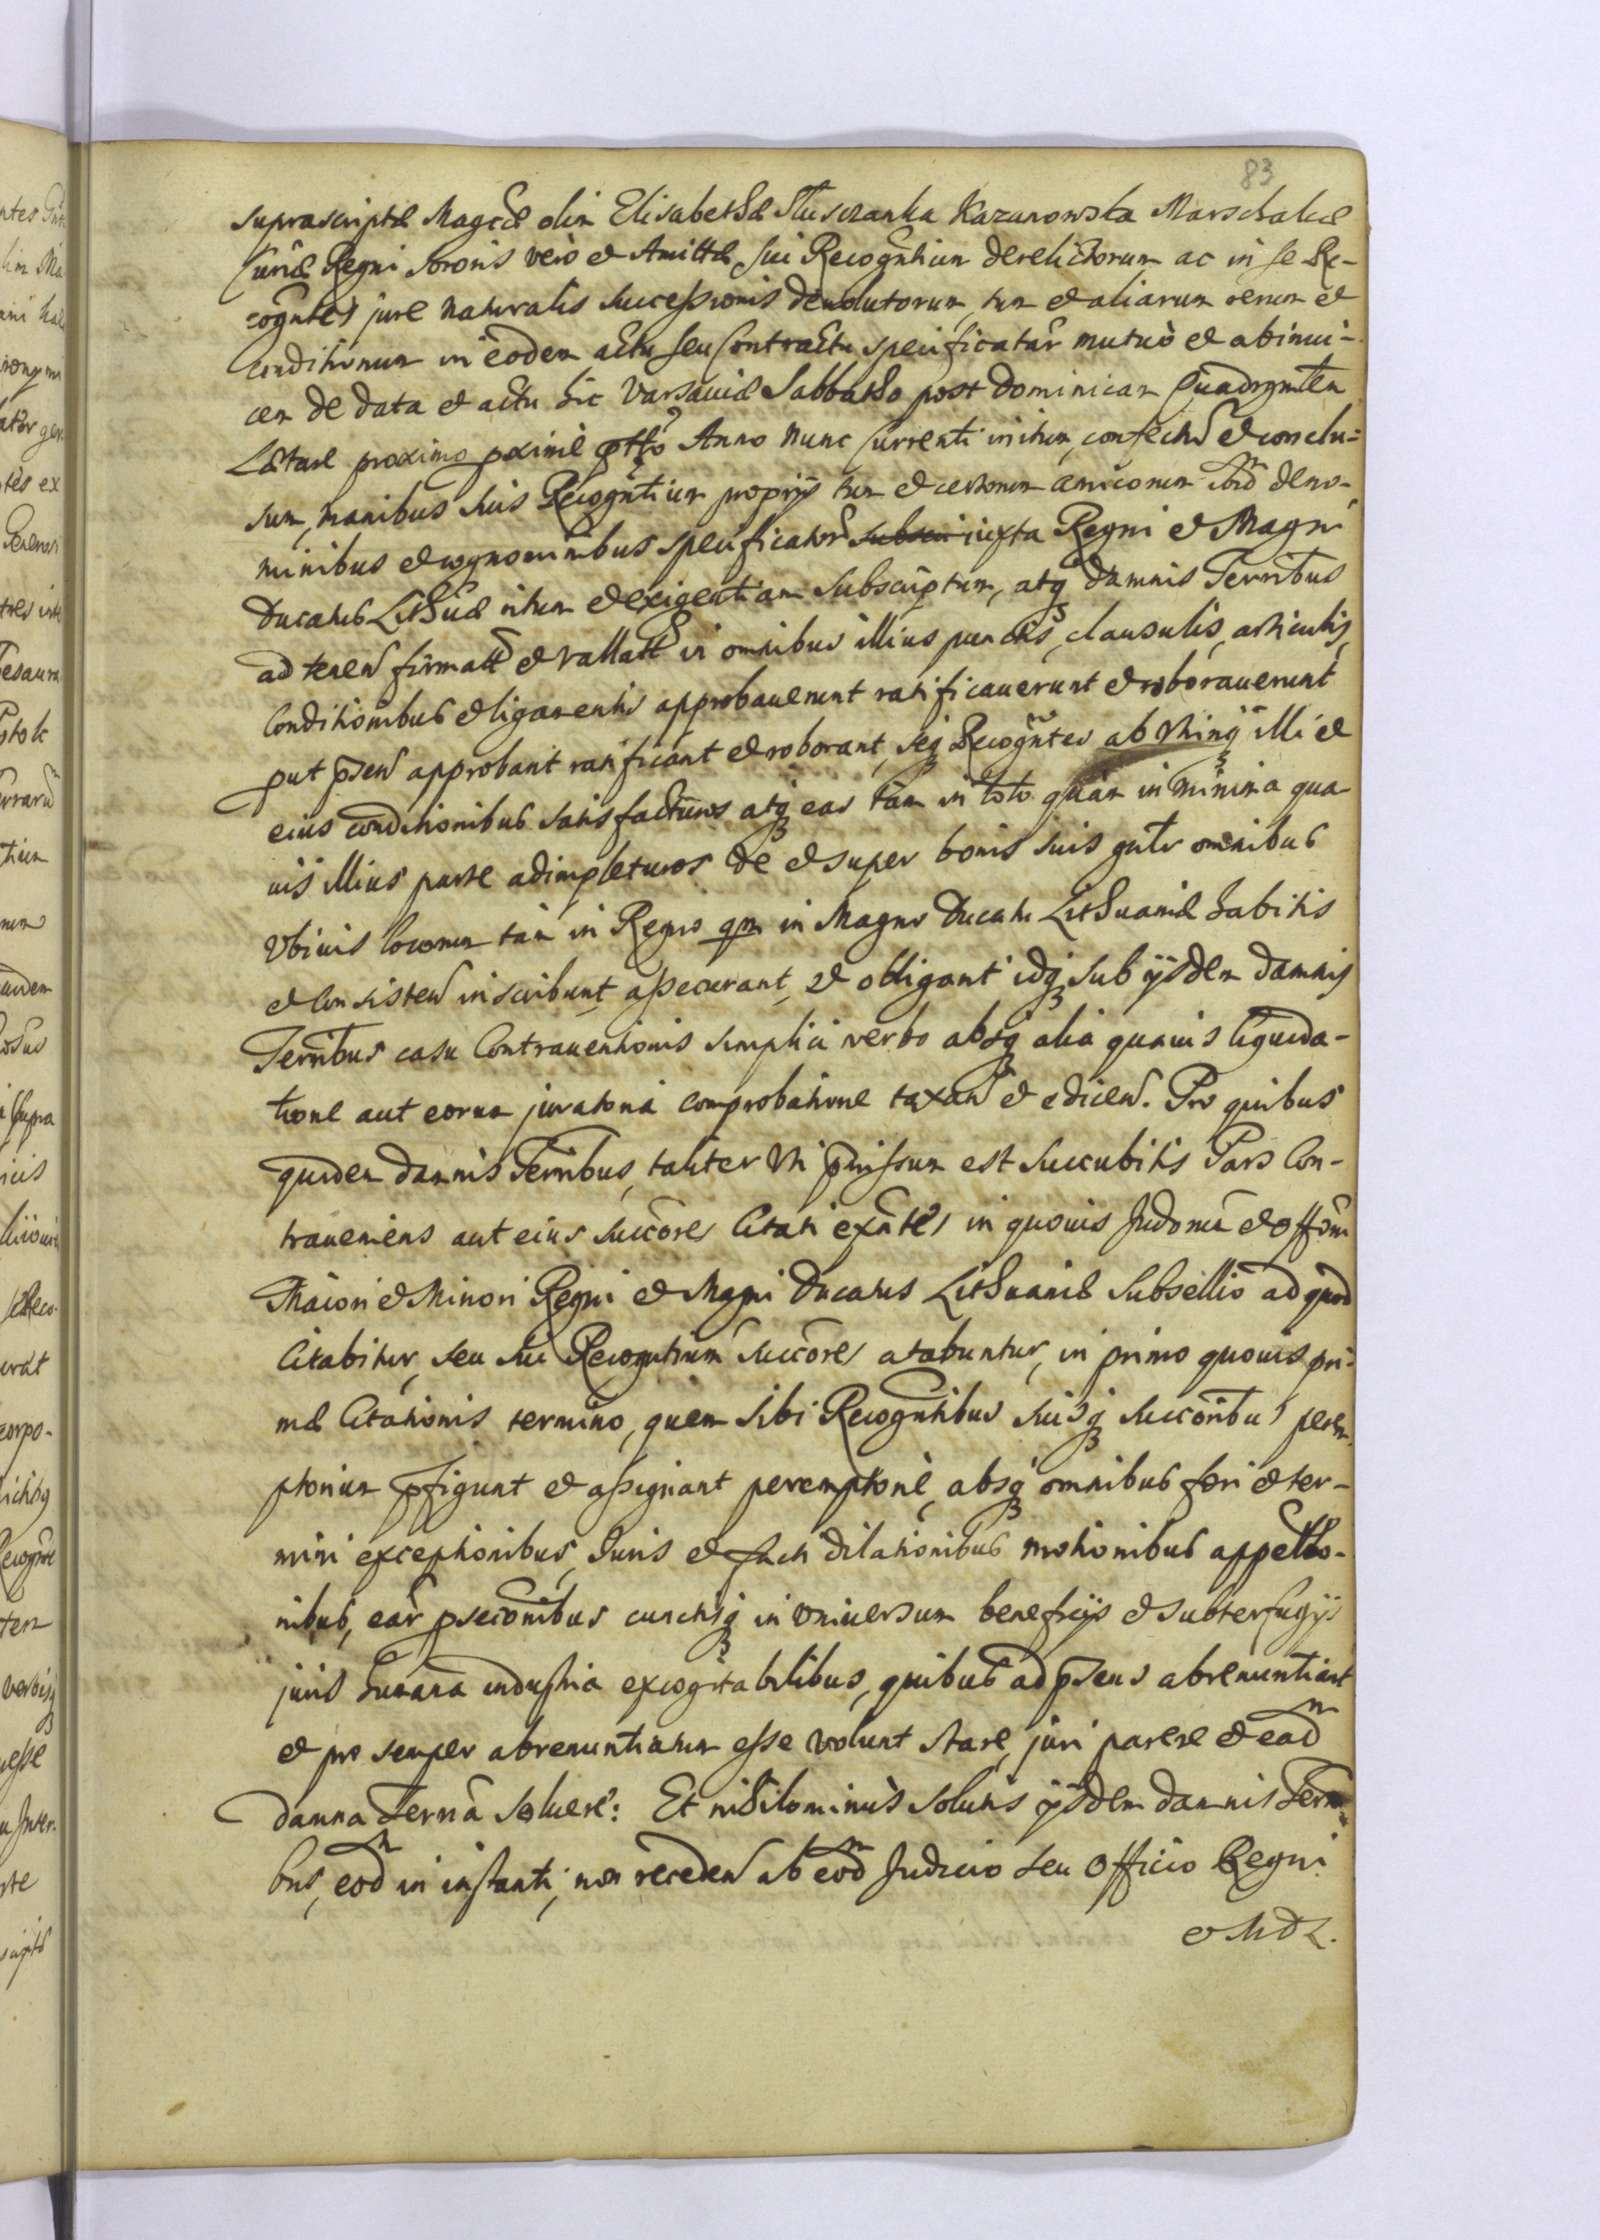 83
suprascriptæ Magcæ olim Elisabethæ Słuszanka Kazanowska Marschalcæ
Curiæ Regni Sororis verò et Amittæ sui Recogntium derelictorum ac in se Re-
cogntes jure naturalis successionis devolutorum, tum et aliarum rerum et
conditionum in eodem actu seu Contractu specificatar mutuò et abinui-
cem de data et actu hic Varsauiæ Sabbatho post Dominicam Quadragmlem
Lætare proximo pximè ptto Anno nunc Currenti initum, confectũ et conclu-
sum, manibus suis Recogntium proprijs tum et certorum amicorum ibid de no-
minibus et cognominibus specificator iuxta Regni et Magni
Ducatus Lithuæ ritum et exigentiam subscriptum, atq damnis Terribus
ad tenen firmatt et vallatt in omnibus illius punctis, clausulis, articulis,
Conditionibus et ligamentis approbauerunt ratificauerunt et roborauerunt
put pseñ approbant ratificant et roborant, seq Recogntes ab vtrinq illi et
eius conditionibus satisfacturos atq eas tam in toto quàm in minima qua
uis illius parte adimpleturos de et super bonis suis gnlr omnibus
Vbiuis locorum tàm in Regno qm in Magno Ducatu Lithuaniæ habitis
et consisteñ inscribunt, assecurant, et obligant idq sub ijsdem damnis
Terribus casu Contrauentionis simplici verbo absq alia quauis liquida-
tione aut eorum juratoria comprobatione taxañ et ediceñ. Pro quibus
quidem damnis Terribus, taliter vti pmissum est succubitis Pars Con-
traueniens aut eius succores Citati exntes in quouis Judoria et Offom
Maiori et Minori Regni et Magni Ducatus Lithuaniæ Subsellio ad quod
Citabitur, seu sui Recogntium succores citabuntur, in primo quouis pri-
mæ Citationis termino, quem sibi Recogntibus suisq succoribus perem-
ptorium pfigunt et assignant peremptoriè, absq omnibus fori et ter-
mini exceptionibus, Juris et facti dilationibus motionibus appello-
nibus, ear psecoribus cunctisq in vniuersum beneficijs et subterfugijs
juris humana industria excogitabilibus, quibus ad pseus abrenuntiant
et pro semper abrenuntiatum esse volunt stare, juri parere et ead
damna Terria soluere: Et nihilominùs solutis ijsdem damnis Terri-
bus, eod in instanti, non recedeñ ab eod Judicio seu Officio Regni
et MDL.